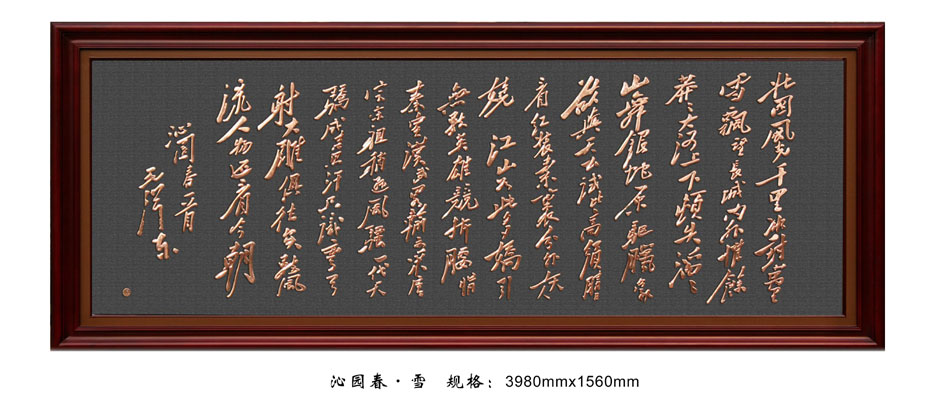 北国风光千里冰封万里
雪飘望长城内外惟馀
莽莽大河上下顿失滔滔
山舞银蛇原驱腊象
欲与天公试比高须晴日
看红装素裹分外妖
娆江山如此多娇引
无数英雄竞折腰惜
秦皇汉武略输文采唐
宗宋祖稍逊风骚一代天
骄成吉思汗只识弯弓
射大雕俱往矣数风
流人物还看今朝
沁园春雪
毛泽东
沁园春·雪 规格：3980mmx1560mm